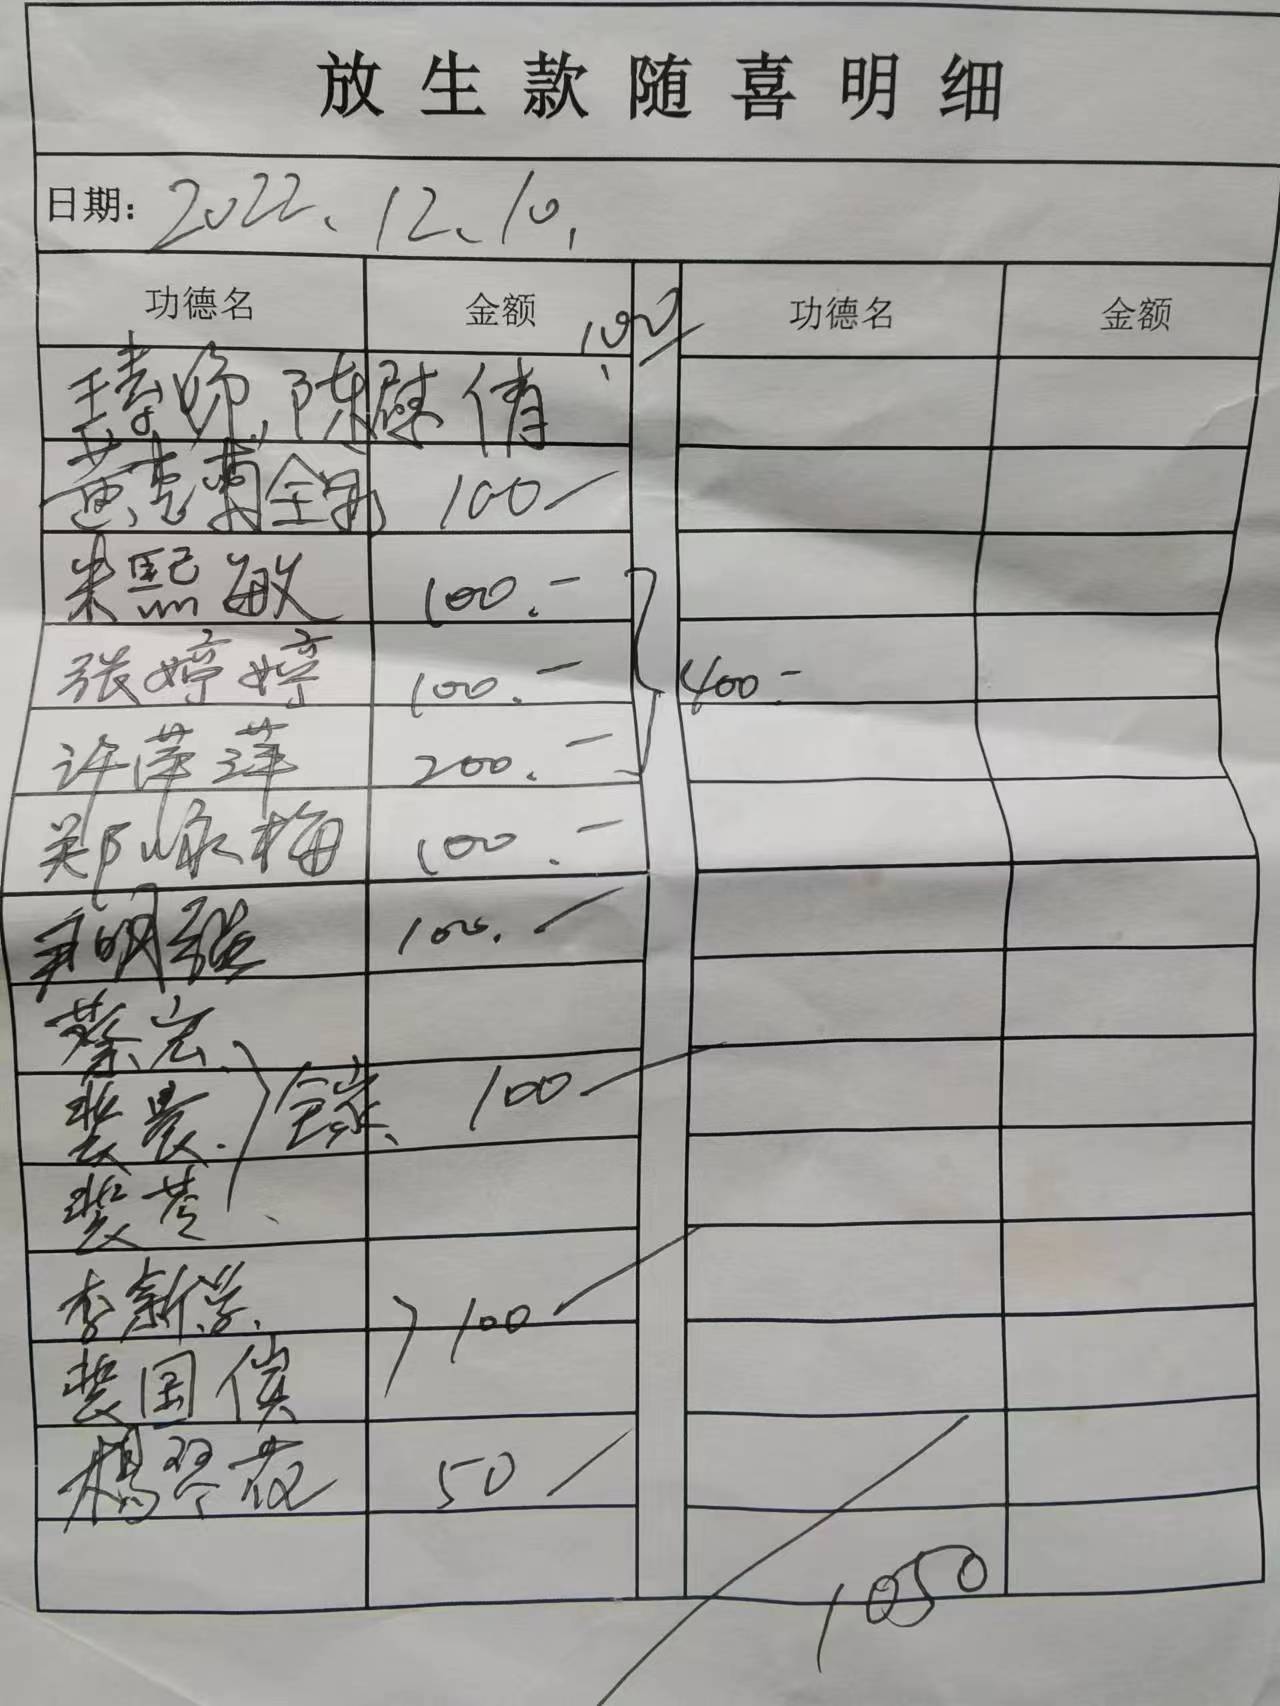 放生款随喜明细
日期: 2022.12.10.
功德名 金额 功德名 金额
100
陈 倩
黄 菊全家 100
朱熙敏 100.-
张婷婷 100.- 400.-
许萍萍 200.-
郑咏梅 100.-
明 100.
蔡宏
裴晨. 全家 100
裴苓
李新学. 100
裴国侯
杨琴花 50
1050